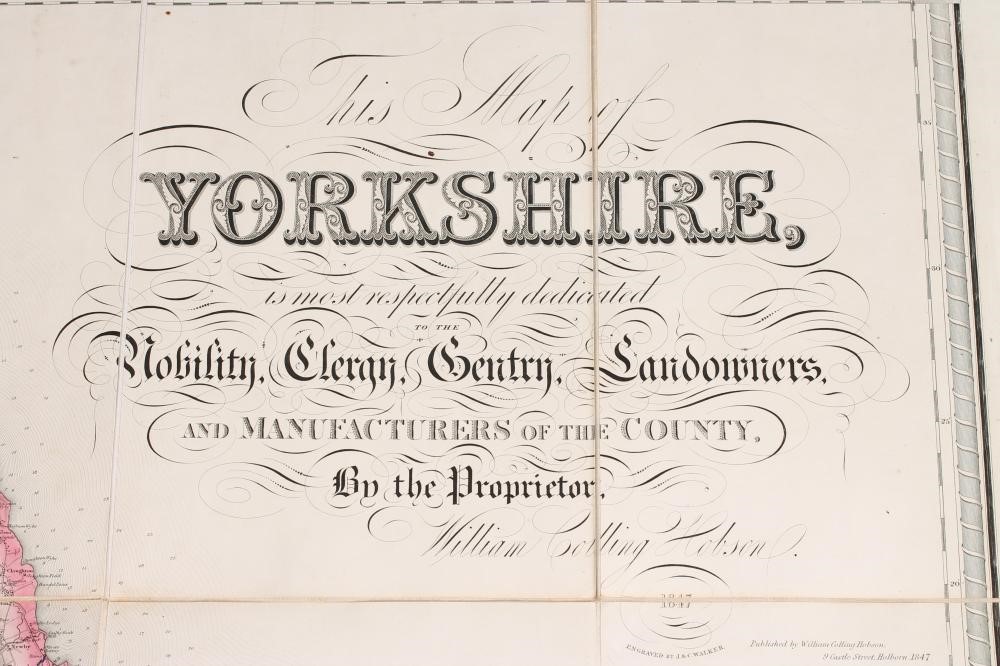 This Map of
YORKSHIRE,
is most respectfully dedicated
TO THE
Nobility, Clergy, Gentry, Landowners,
AND MANUFACTURERS OF THE COUNTY,
By the Proprietor,
William Colling Hobson.
1847
ENGRAVED BY J. & C. WALKER.
Published by William Colling Hobson,
9 Castle Street, Holborn 1847
35
30
25
20
Cloughton